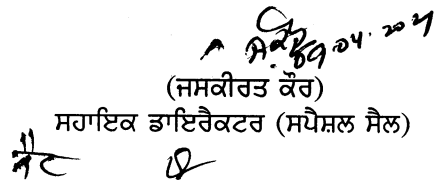 09.04.2021
(ਜਸਕੀਰਤ ਕੌਰ)
ਸਹਾਇਕ ਡਾਇਰੈਕਟਰ (ਸਪੈਸ਼ਲ ਸੈਲ)